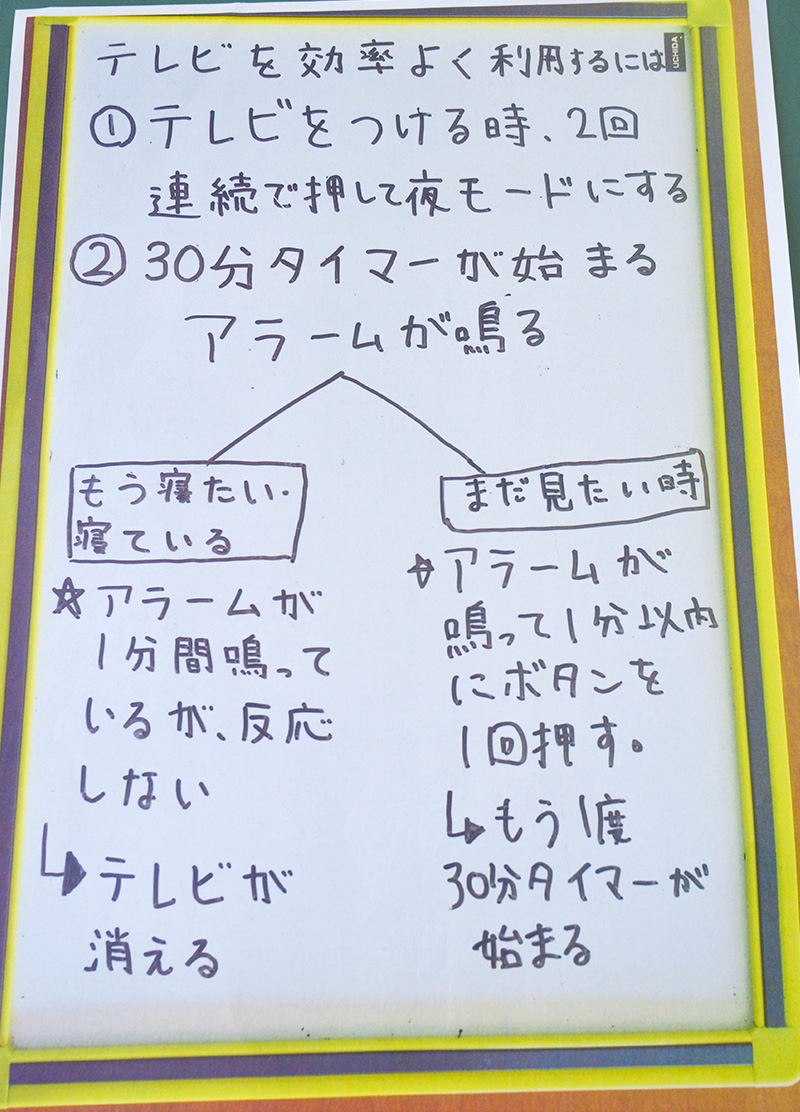 テレビを効率よく利用するには
UCHIDA
①テレビをつける時、2回
連続で押して夜モードにする
②30分タイマーが始まる
アラームが鳴る
もう寝たい・
寝ている
☆アラームが
1分間鳴って
いるが、反応
しない
↳テレビが
消える
まだ見たい時
☆アラームが
鳴って1分以内
にボタンを
1回押す。
↳もう1度
30分タイマーが
始まる